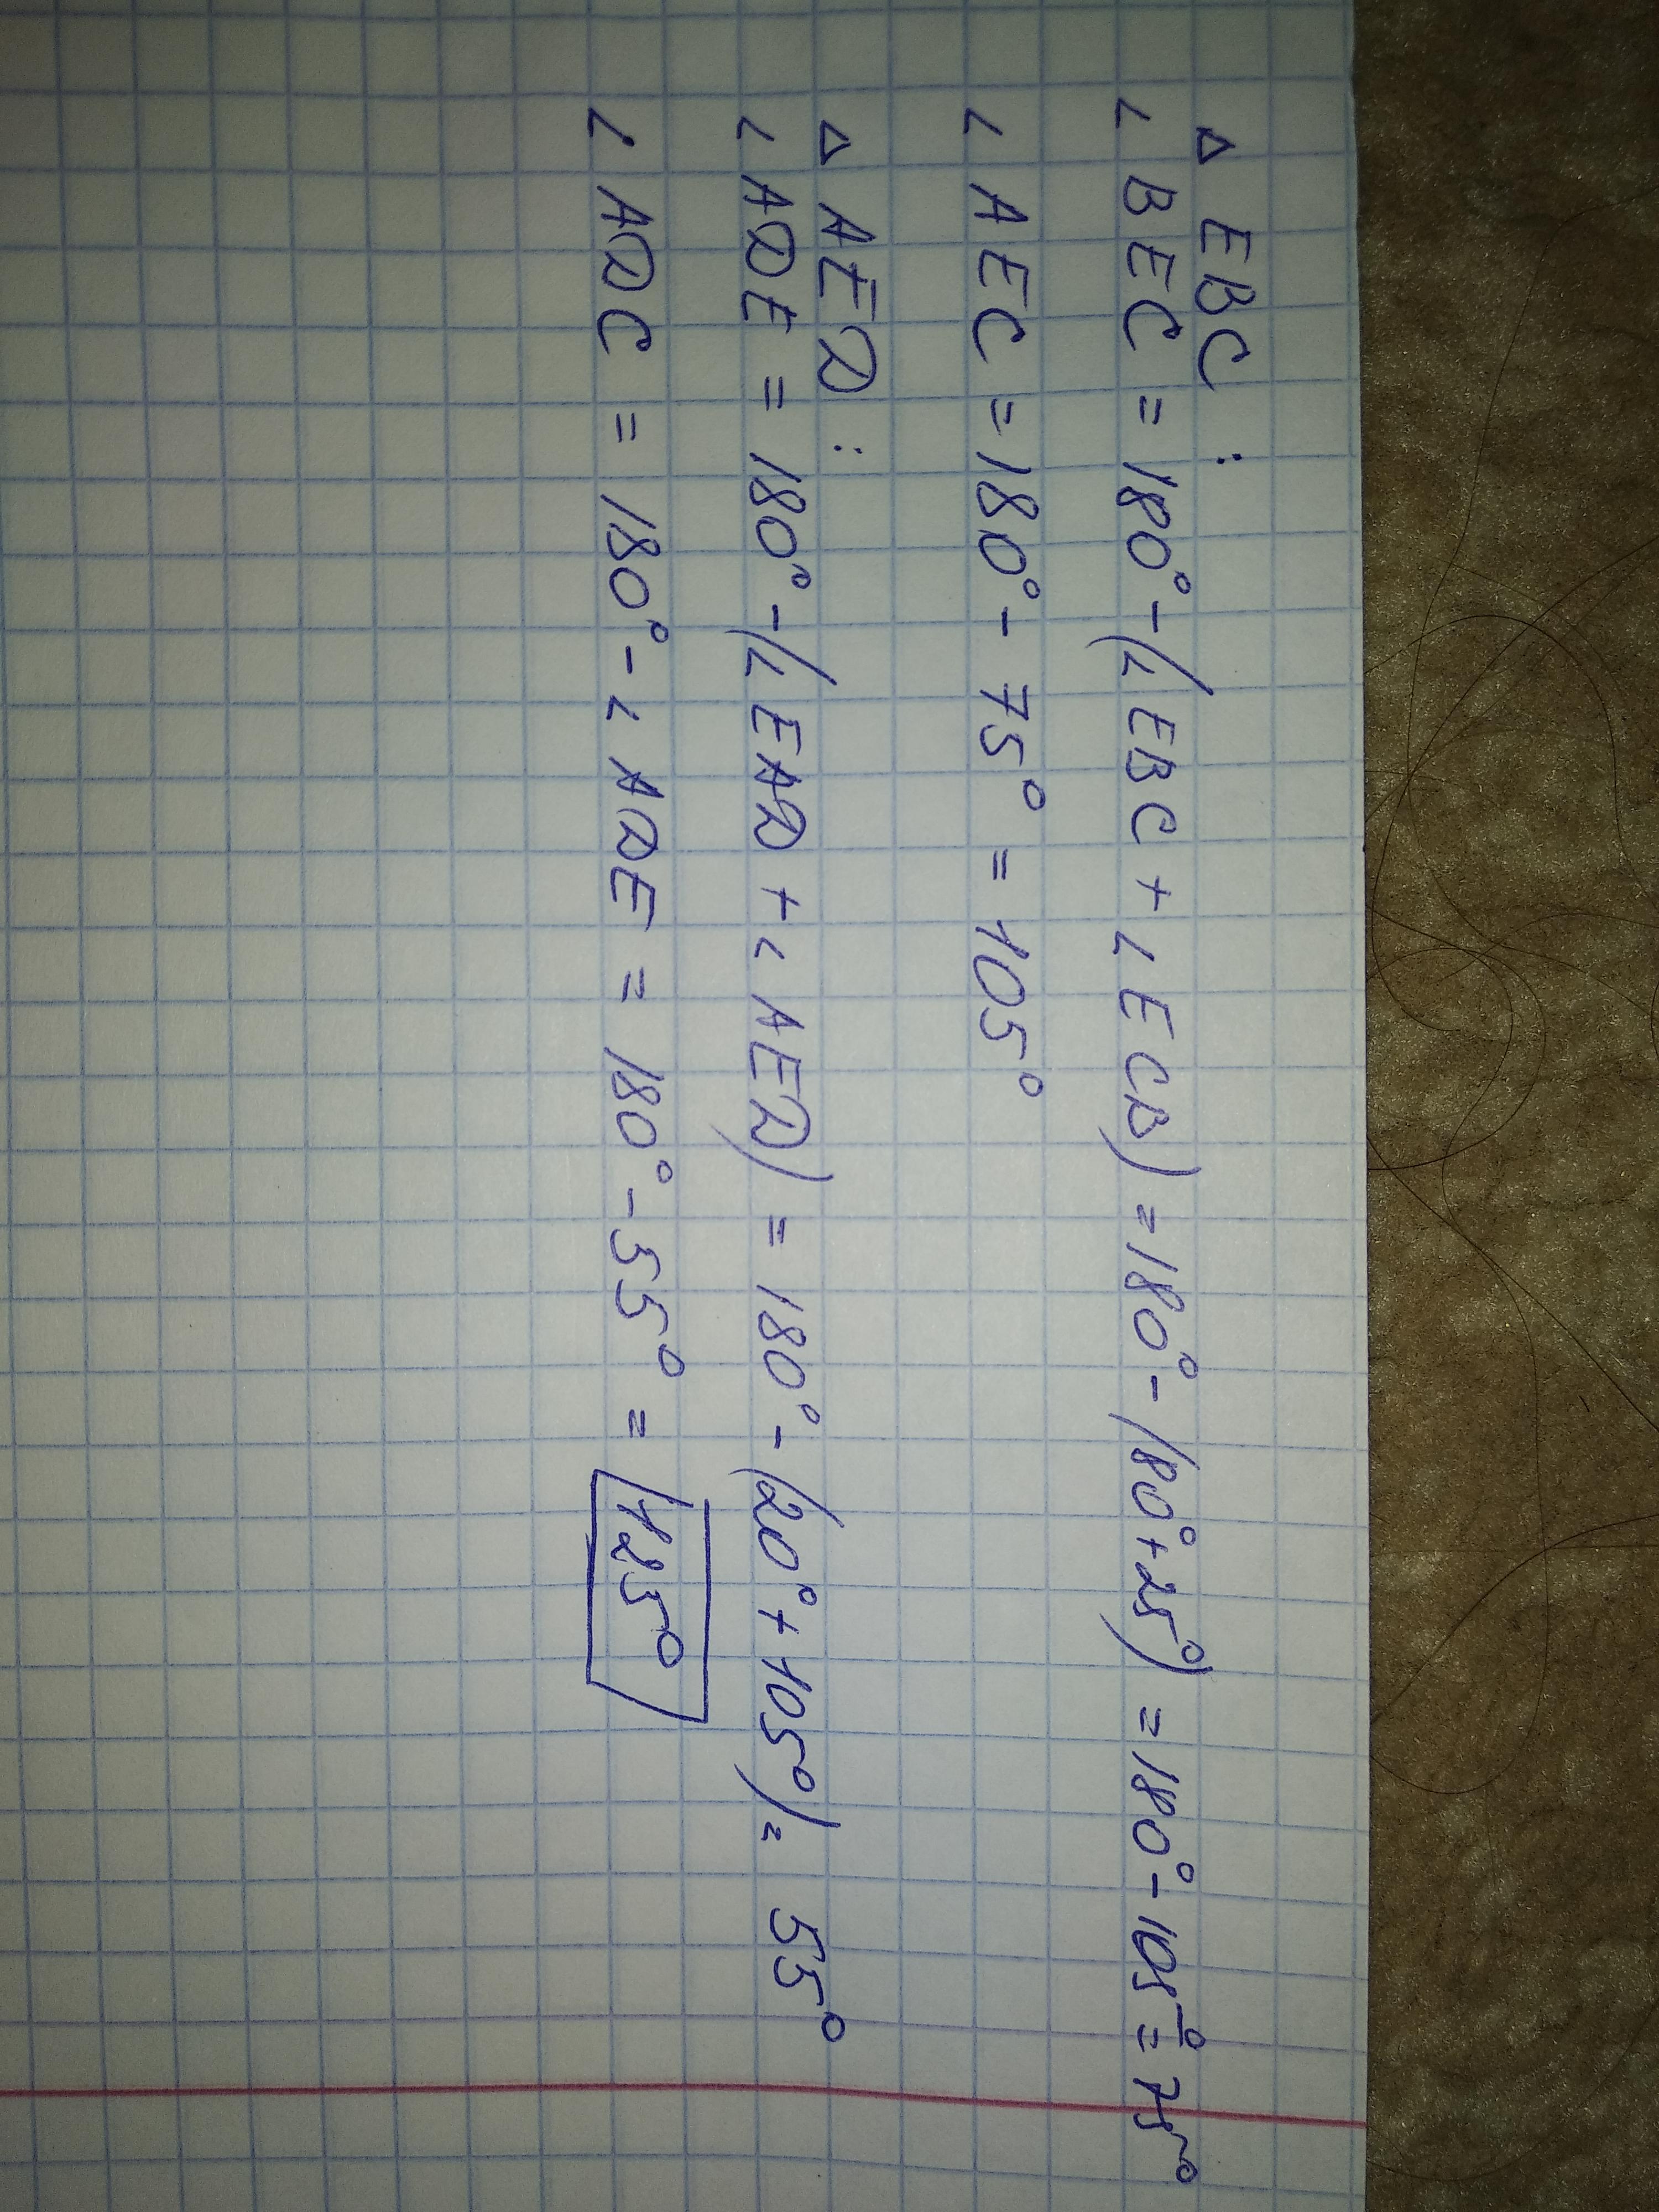 △ EBC :
∠ BEC = 180° - (∠ EBC + ∠ ECB) = 180° - (80° + 25°) = 180° - 105° = 75°
∠ AEC = 180° - 75° = 105°
△ AED :
∠ ADE = 180° - (∠ EAD + ∠ AED) = 180° - (20° + 105°) = 55°
∠ ADC = 180° - ∠ ADE = 180° - 55° = 125°